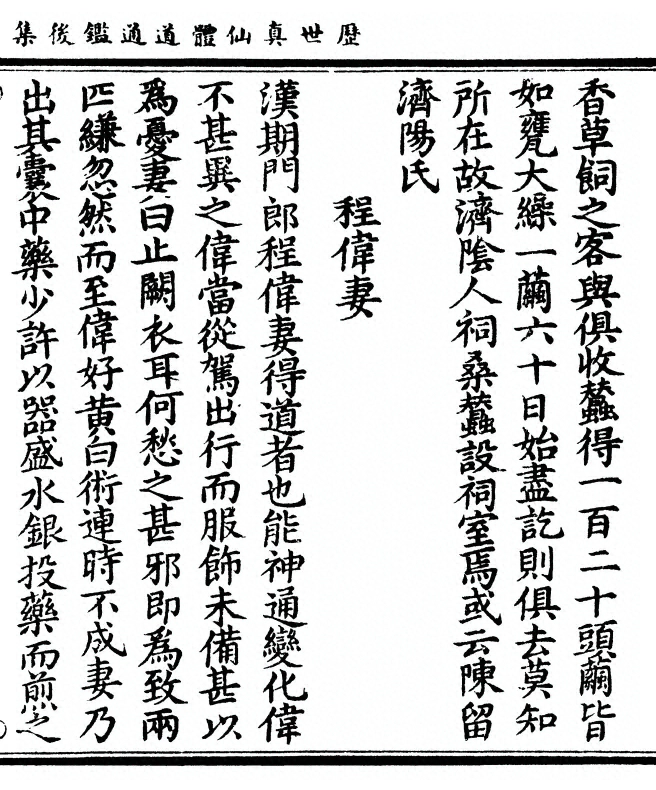 歷世真仙體道通鑑後集
香草飼之客與俱收蠶得一百二十頭繭皆
如甕大繰一繭六十日始盡訖則俱去莫知
所在故濟陰人祠桑蠶設祠室焉或云陳留
濟陽氏
程偉妻
漢期門郎程偉妻得道者也能神通變化偉
不甚異之偉當從駕出行而服飾未備甚以
為憂妻曰止闕衣耳何愁之甚邪即為致兩
匹縑忽然而至偉好黃白術連時不成妻乃
出其囊中藥少許以器盛水銀投藥而煎之